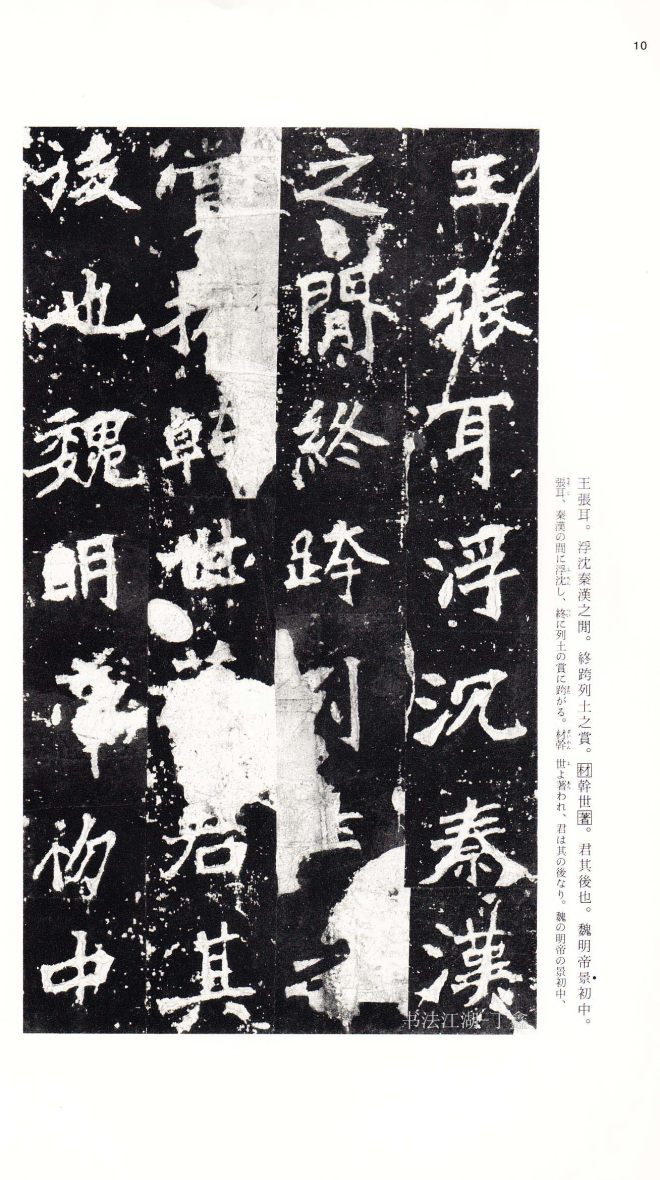 10
王張耳。浮沈秦漢之閒。終跨列土之賞。材幹世著。君其後也。魏明帝景初中。
張耳、秦漢の間に浮沈し、終に列土の賞に跨がる。材幹 世よ著われ、君は其の後なり。魏の明帝の景初中、
王張耳浮沉秦漢
之閒終跨列土之
賞材幹世君其
後也魏明帝初中
书法江湖 丁鑫